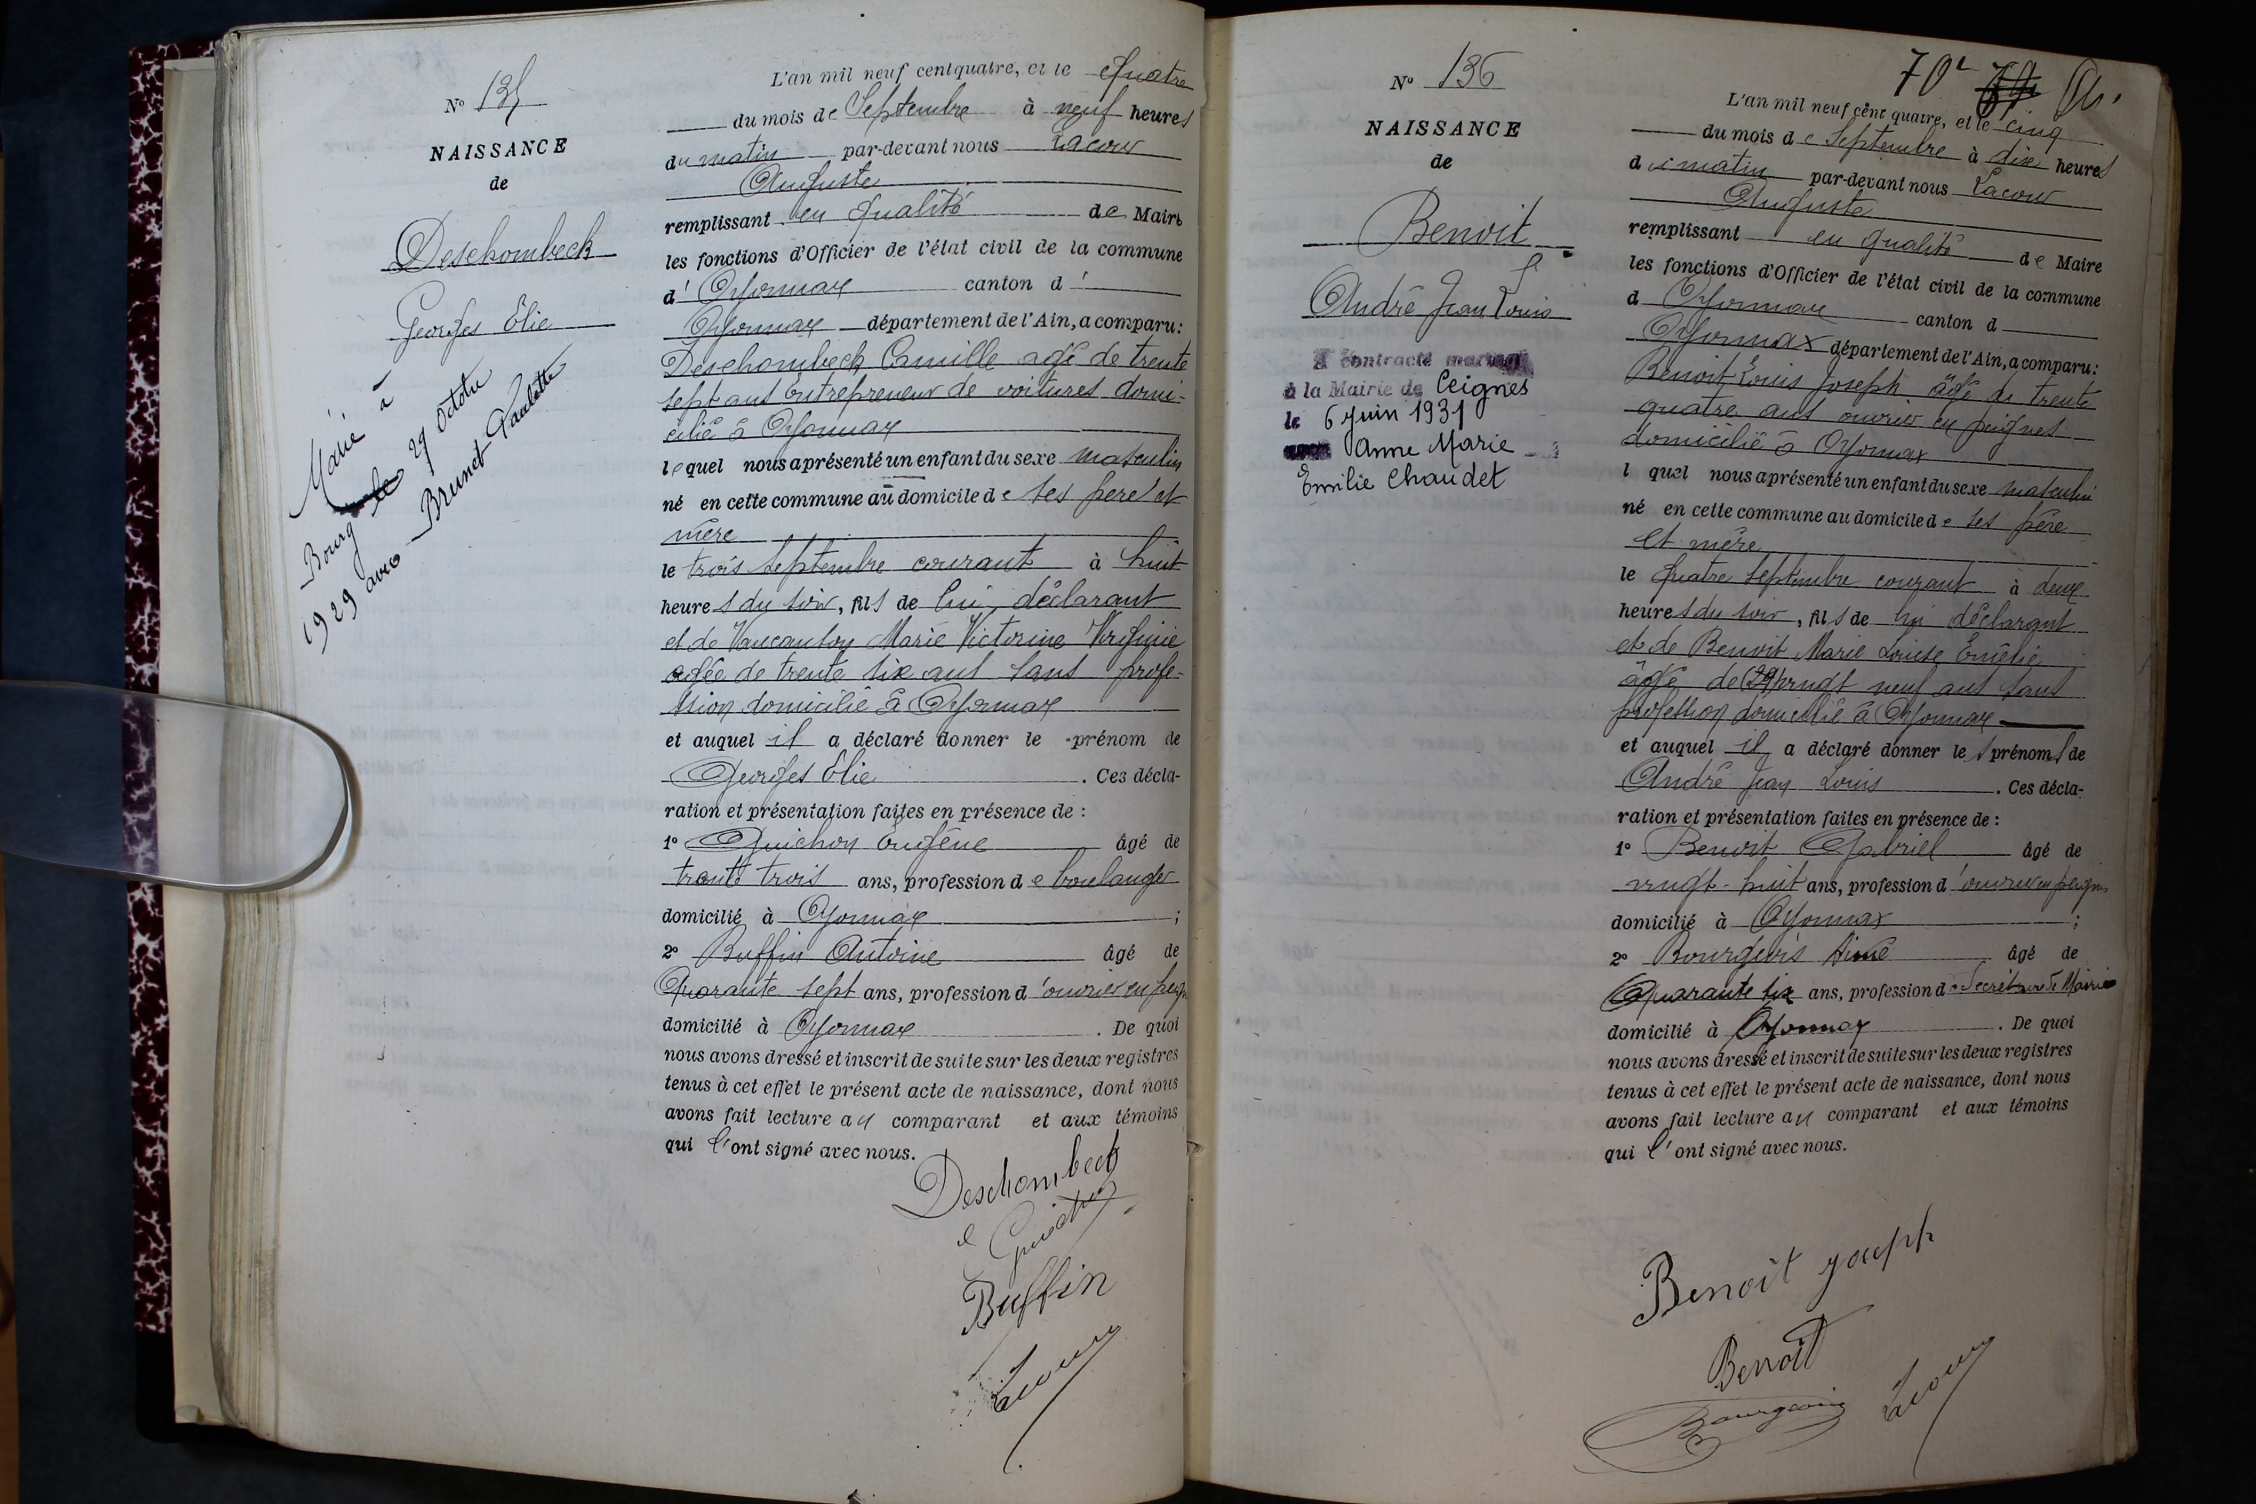 Nº 135
NAISSANCE
de
Deschombeck
Georges Elie
Marié à
Bourg le 29 Octobre
1929 avec Brunet Paulette
L'an mil neuf cent quatre, et le quatre
du mois de Septembre à neuf heures
du matin par-devant nous Lacour
Auguste
remplissant en qualité de Maire
les fonctions d'Officier de l'état civil de la commune
d' Oyonnax canton d'
Oyonnax département de l'Ain, a comparu:
Deschombeck Camille agé de trente
sept ans Entrepreneur de voitures domi-
cilié à Oyonnax
lequel nous a présenté un enfant du sexe masculin
né en cette commune au domicile de ses pere et
mère
le trois Septembre courant à huit
heures du soir, fils de lui déclarant
et de Vaucanson Marie Victorine Virginie
agée de trente six ans sans profe-
ssion domicilié à Oyonnax
et auquel il a déclaré donner le prénom de
Georges Elie. Ces décla-
ration et présentation faites en présence de :
1º Guichon Eugène âgé de
trente trois ans, profession de boulanger
domicilié à Oyonnax ;
2º Buffin Antoine âgé de
Quarante sept ans, profession d'ouvrier en peign
domicilié à Oyonnax. De quoi
nous avons dressé et inscrit de suite sur les deux registres
tenus à cet effet le présent acte de naissance, dont nous
avons fait lecture au comparant et aux témoins
qui l'ont signé avec nous.
Deschombeck
Buffin
Lacour
70e
Nº 136
NAISSANCE
de
Benoit
André Jean Louis
A contracté mariage
à la Mairie de Ceignes
le 6 Juin 1931
avec Anne Marie
Emilie Chaudet
L'an mil neuf cent quatre, et le cinq
du mois de Septembre à dix heures
du matin par-devant nous Lacour
Auguste
remplissant en qualité de Maire
les fonctions d'Officier de l'état civil de la commune
d Oyonnax canton d
Oyonnax département de l'Ain, a comparu:
Benoit Louis Joseph âgé de trente
quatre ans ouvrier en peignes
domicilié à Oyonnax
l quel nous a présenté un enfant du sexe masculin
né en cette commune au domicile de ses père
et mère
le quatre Septembre courant à deux
heures du soir, fils de lui déclarant
et de Benoit Marie Louise Emélie
âgé de (29) vingt neuf ans sans
profession domicilié à Oyonnax
et auquel il a déclaré donner les prénoms de
André Jean Louis. Ces décla-
ration et présentation faites en présence de :
1º Benoit Gabriel âgé de
vingt-huit ans, profession d'ouvrier en peignes
domicilié à Oyonnax ;
2º Bourgeois Aimé âgé de
Quarante six ans, profession de Secrétaire de Mairie
domicilié à Oyonnax. De quoi
nous avons dressé et inscrit de suite sur les deux registres
tenus à cet effet le présent acte de naissance, dont nous
avons fait lecture au comparant et aux témoins
qui l'ont signé avec nous.
Benoit joseph
Benoit
Bourgeois
Lacour